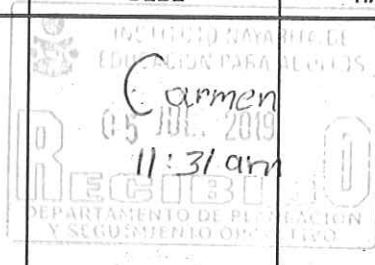 INSTITUTO NAYARITA DE
EDUCACIÓN PARA ADULTOS
Carmen
05 JUL. 2019
11:31 am
RECIBIDO
DEPARTAMENTO DE PLANEACIÓN
Y SEGUIMIENTO OPERATIVO